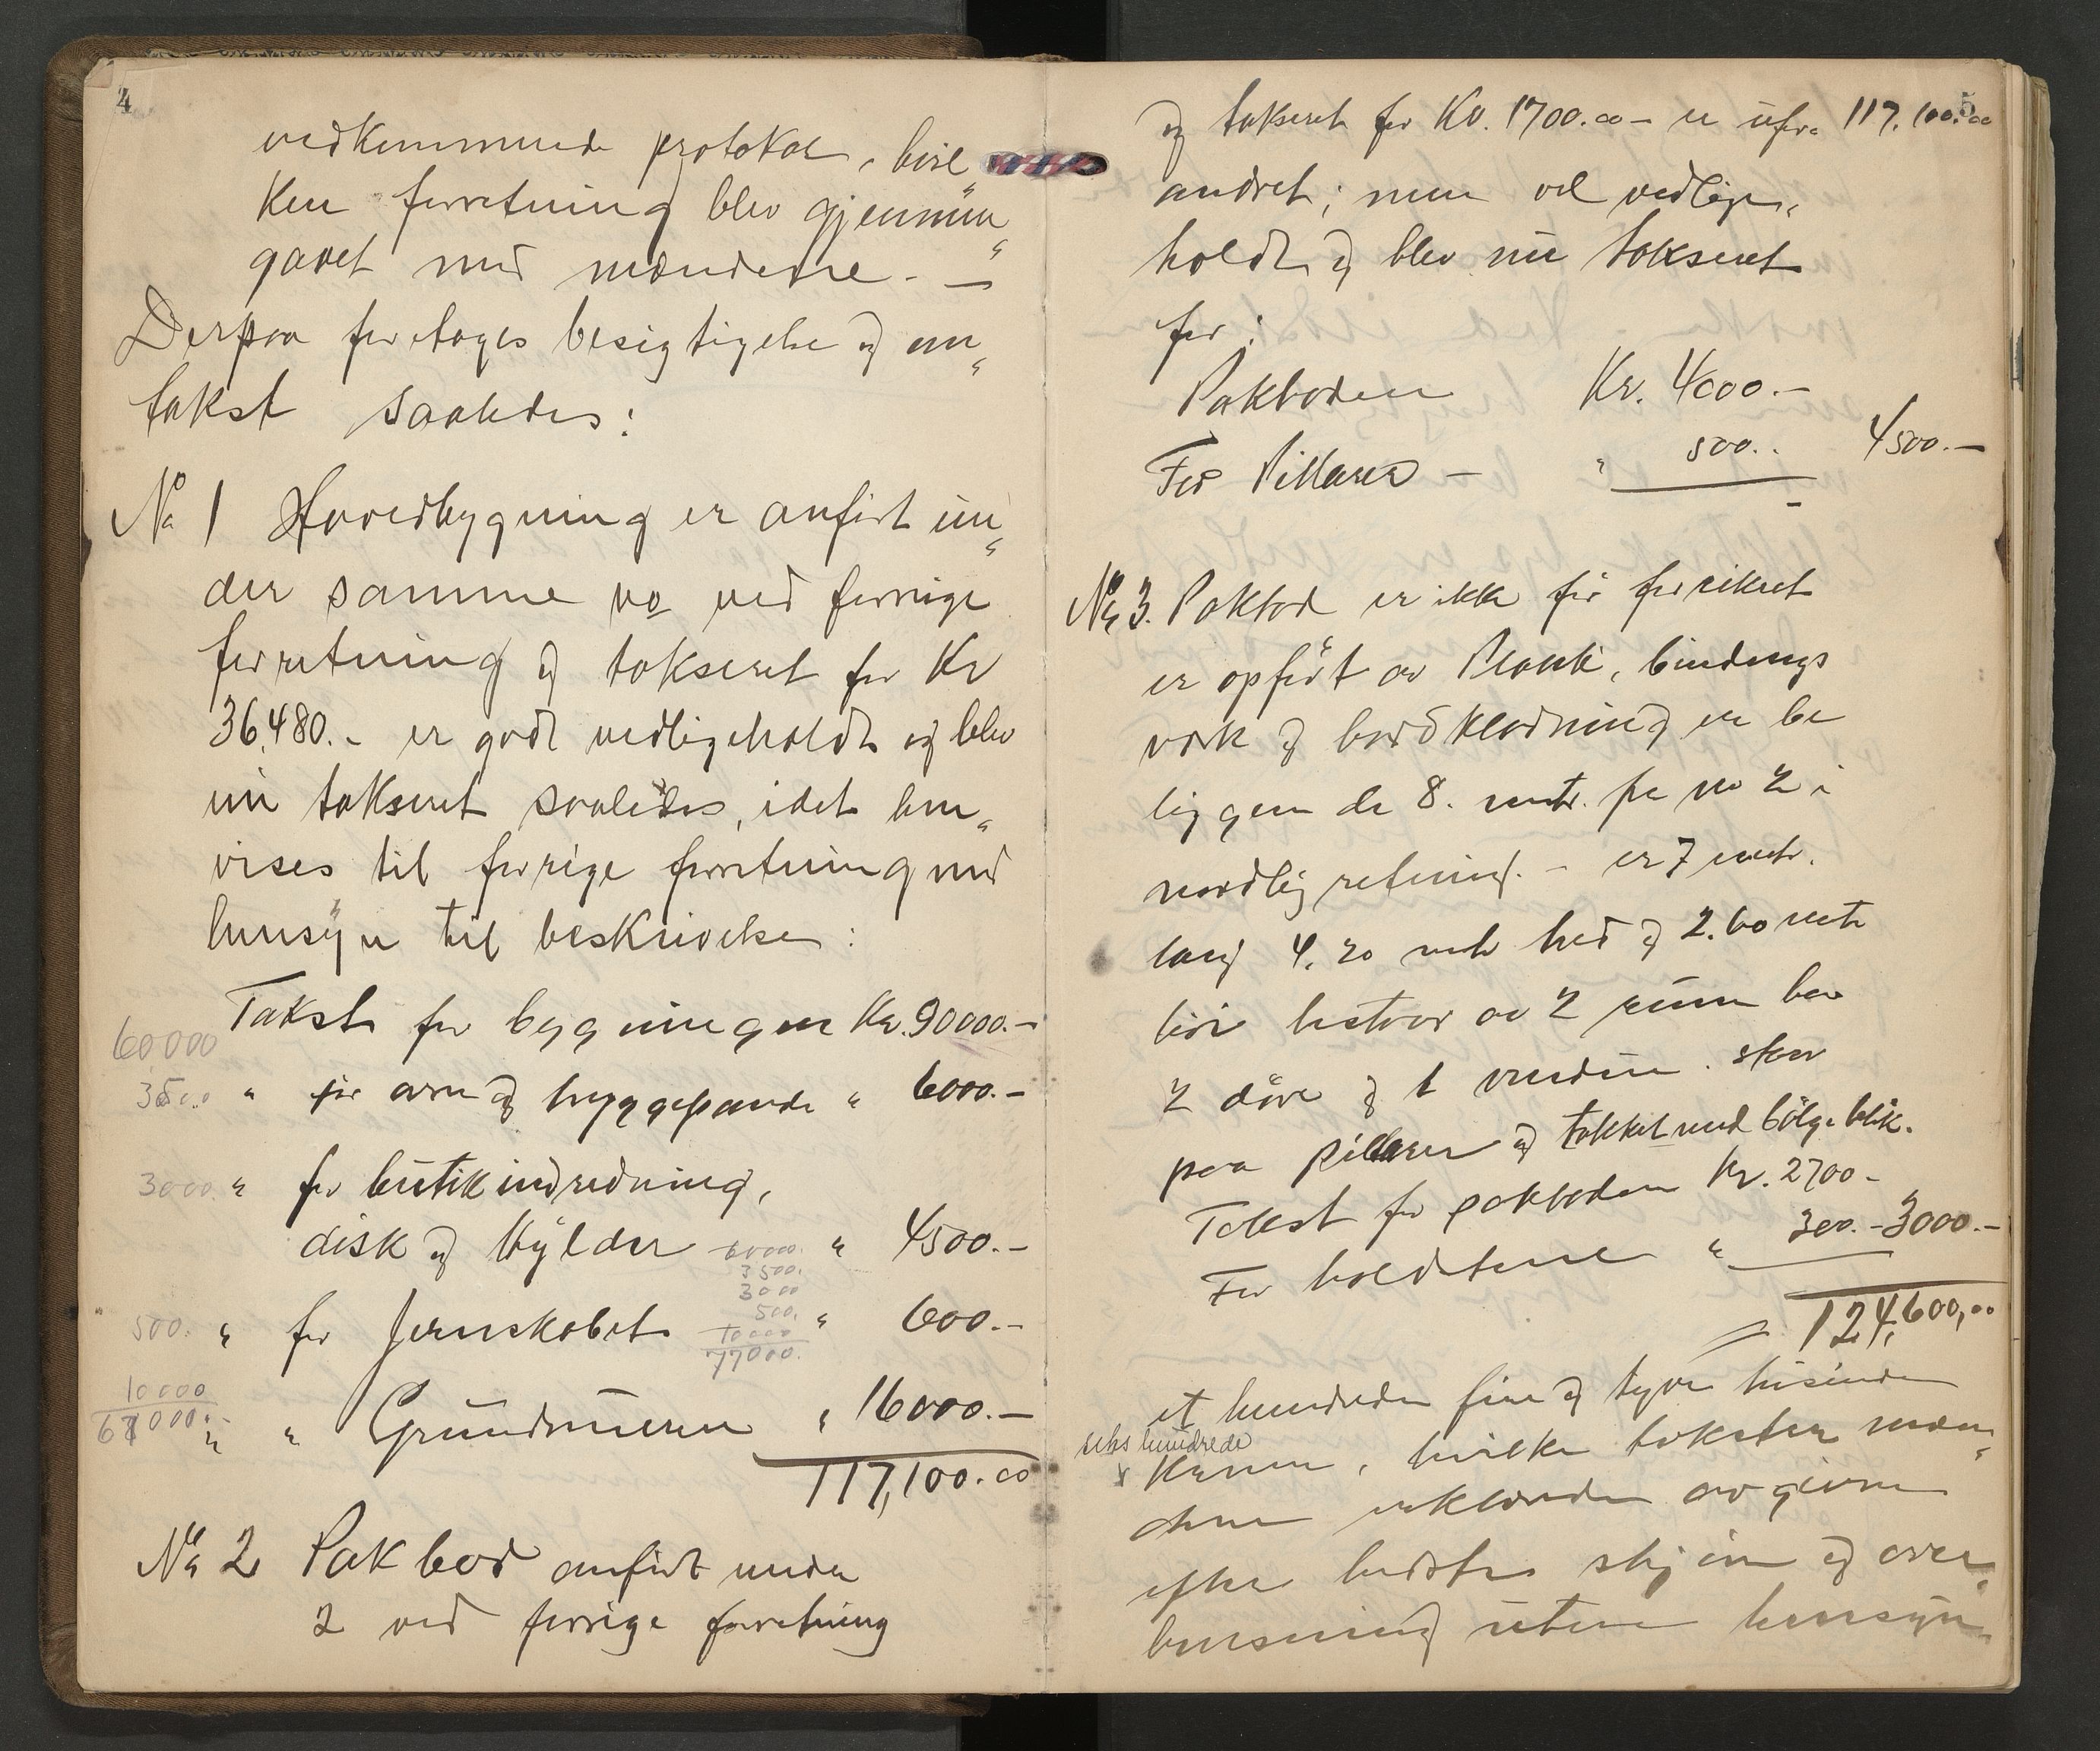 4
vedkommende protokol, hvil
ken forretning blev gjennem„
gaaet med mændene. —
Derpaa foretages besigtigelse og om„
takst saaledes:
No 1 Hovedbygning er anført un„
der samme no ved forrige
forretning og takseret for Kr
36,480.- er godt vedligeholdt og blev
nu takseret saaledes, idet hen„
vises til forrige forretning med
hensyn til beskrivelse:
Takst for bygningen Kr. 90000.—
60,000
3500.. „ for arne og bryggepande „ 6000.—
3000. „ for butikindredning,
disk og Hylder „ 4500.—
60000.
3500.
3000
500.
10000
77000.
500. „ for Jernskabet „ 600.—
10000
„ „ Grundmuren „ 16000.—
117,100.00
No 2 Pakbod anført under
2 ved forrige forretning
5
og takseret for Kr. 1700.00 — er ufor„ 117.100.00
andret; men vel vedlige„
holdt og blev nu takseret
for:
Pakboden Kr. 4000.—
For Pillarer — „ 500.. 4500.—
No 3. Pakbod er ikke før forsikret
er opført av Plank, bindings
verk og bordklædning er be
liggende 8. mtr. fra no 2 i
nordlig retning. — er 7 metr.
lang 4.20 metr bred og 2.60 metr
høi bestaar av 2 rum har
2 døre og 1 vindu. staar
paa pillarer og tækket med bølgeblik.
Takst for pakboden Kr. 2700 -
For holdstene „ 300.- 3000.—
= 124,600,00
et hundrede fire og tyve tusinde
seks hundrede
x Kroner, hvilke takster mæn„
dene erklærede avgivne
efter bedste skjøn og over„
bevisning uten hensyn„